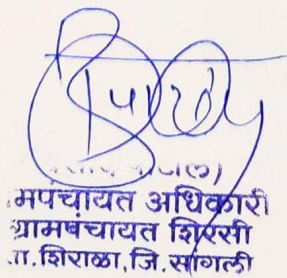 मपंचायत अधिकारी
ग्रामपंचायत शिरसी
ता.शिराळा,जि.सांगली